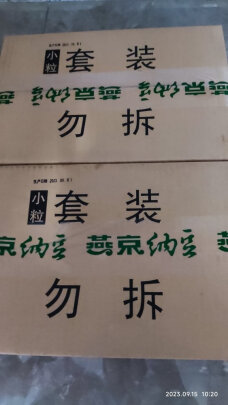 小粒 套装
燕京纳豆 燕京纳豆
勿拆
小粒 套装
京纳豆 燕京纳豆
勿拆
2023.09.15 10:20